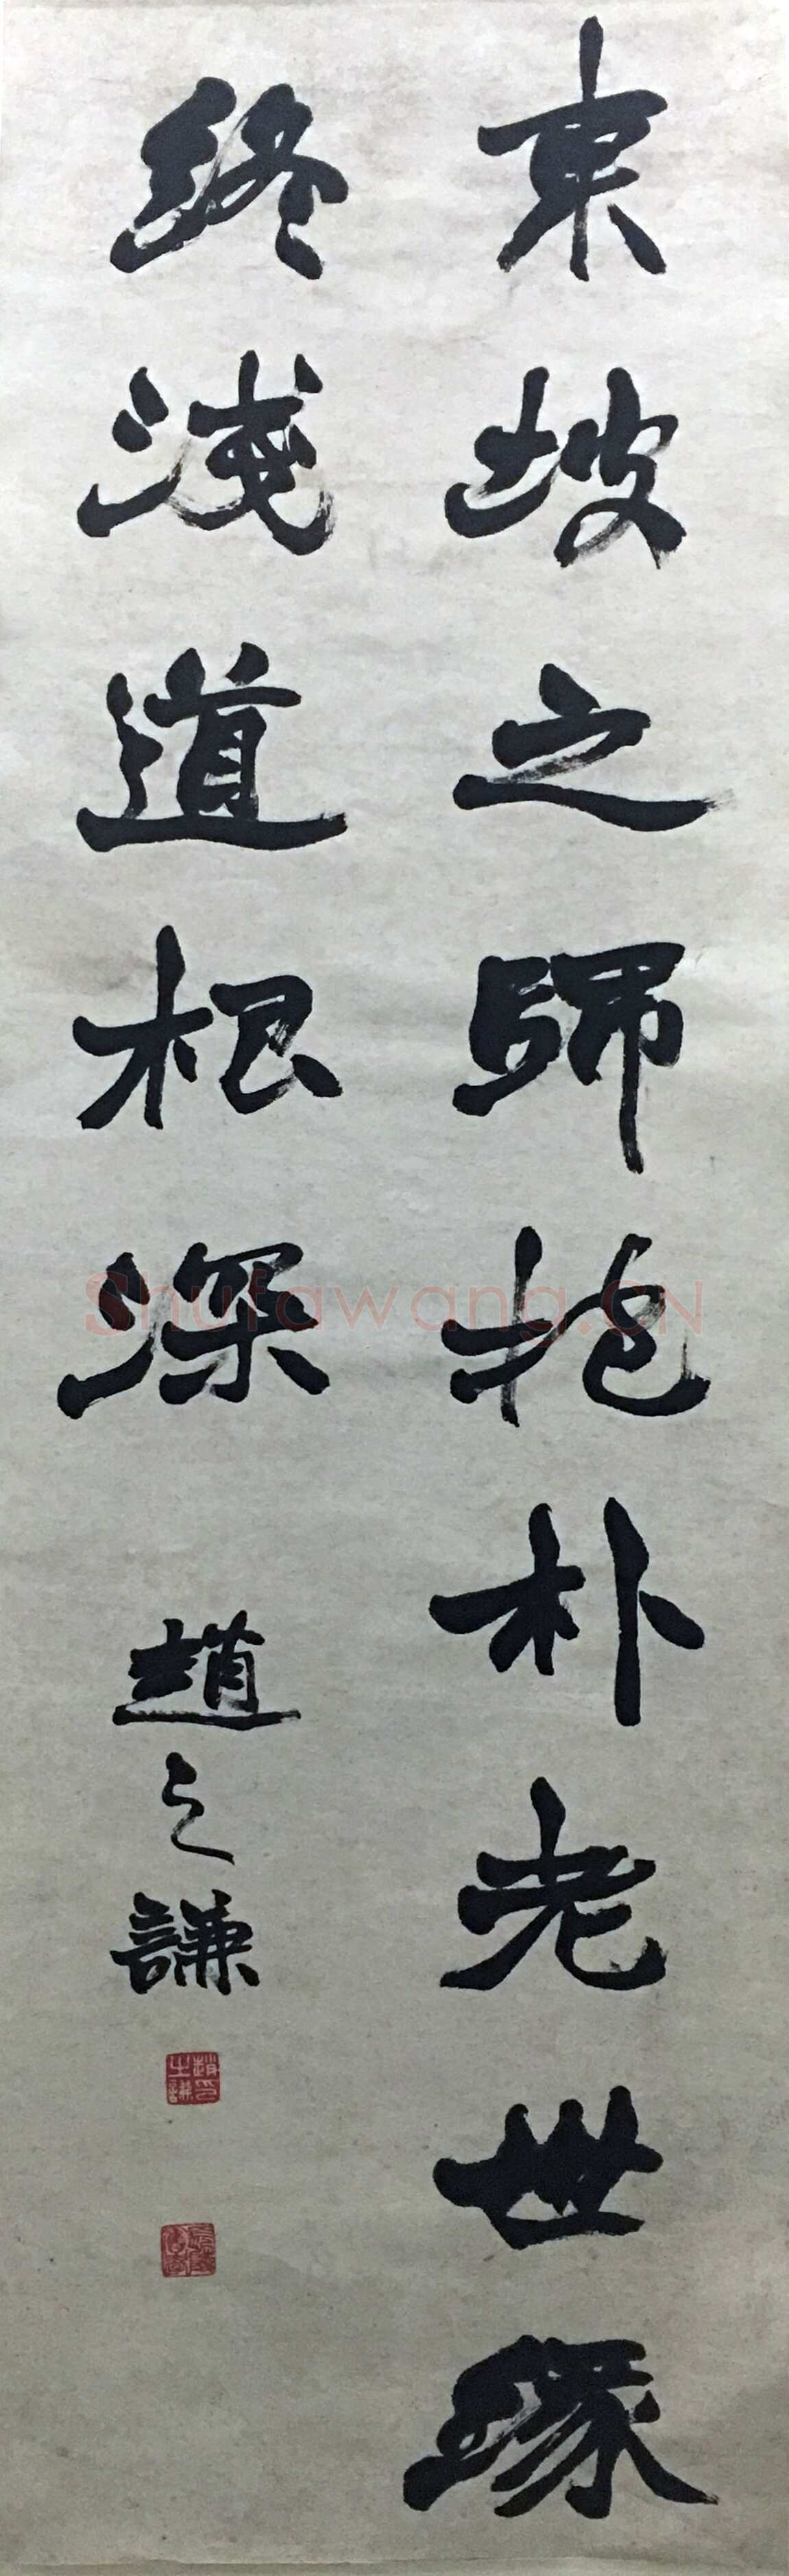 東坡之師抱朴老世緣
終淺道根深
趙之謙
趙之謙印
Shufawang.CN